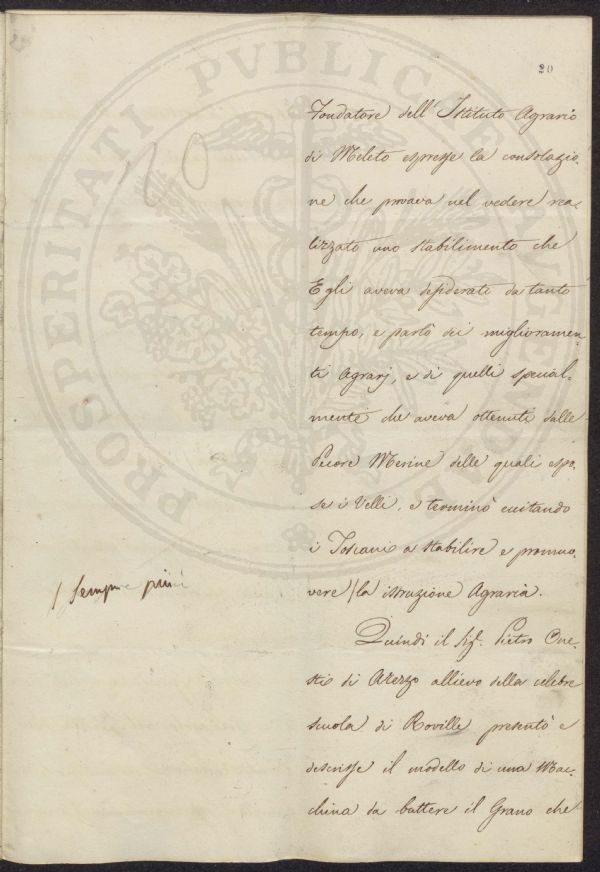 20
120
Fondatore dell'Istituto Agrario
di Meleto espresse la consolazio
ne che provava nel vedere rea-
lizzato uno stabilimento che
Egli aveva desiderato da tanto
tempo, e parlò dei miglioramen-
ti Agrarj, e di quelli special-
mente che aveva ottenuti dalle
Pecore Merine delle quali espo-
se i Velli, e terminò eccitando
i Toscani a stabilire e promuo-
/ sempre più
vere / la istruzione Agraria.
Quindi il Sig. Pietro One-
sti di Arezzo allievo della celebre
scuola di Roville presentò e
descrisse il modello di una Mac-
china da battere il Grano che
PROSPERITATI PUBLICAE AUGENDAE